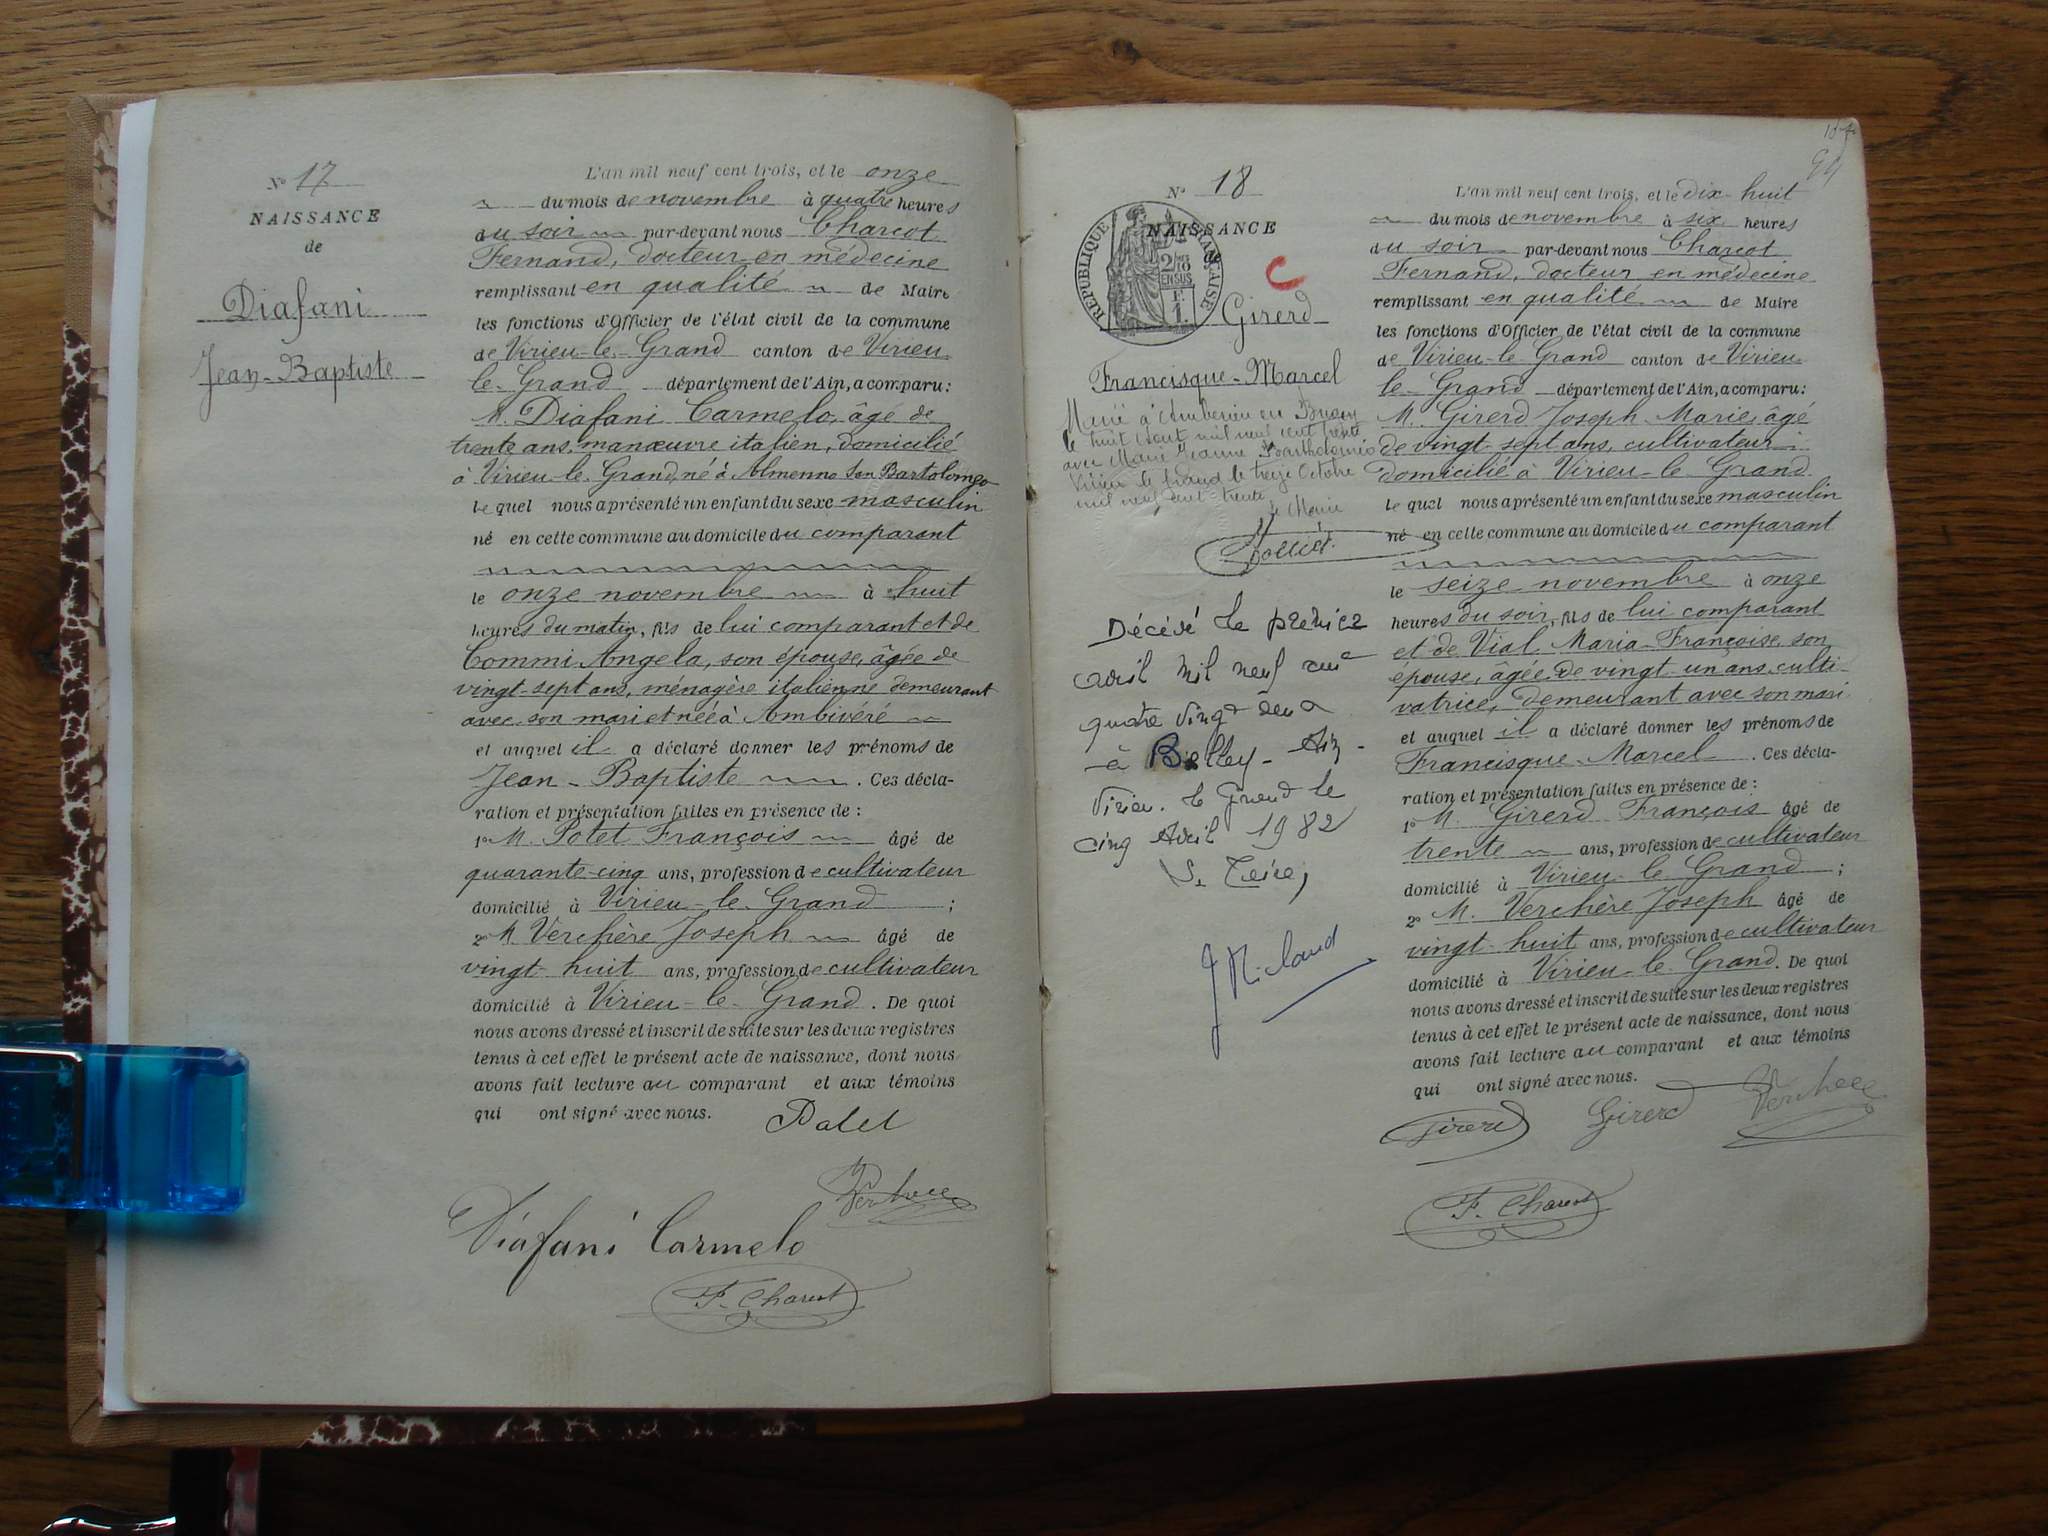 N° 17
NAISSANCE
de
Diafani
Jean-Baptiste
L'an mil neuf cent trois, et le onze
du mois de novembre à quatre heures
du soir par-devant nous Charcot
Fernand, docteur en médecine
remplissant en qualité de Maire
les fonctions d'Officier de l'état civil de la commune
de Virieu-le-Grand canton de Virieu
le-Grand département de l'Ain, a comparu:
M. Diafani Carmelo, âgé de
trente ans, manœuvre italien, domicilié
à Virieu-le-Grand, né à Almenno San Bartolomeo
lequel nous a présenté un enfant du sexe masculin
né en cette commune au domicile du comparant
le onze novembre à huit
heures du matin, fils de lui comparant et de
Commi Angela, son épouse, âgée de
vingt-sept ans, ménagère italienne demeurant
avec son mari et née à Ambivéré
et auquel il a déclaré donner les prénoms de
Jean-Baptiste. Ces décla-
ration et présentation faites en présence de :
1° M. Potet François âgé de
quarante-cinq ans, profession de cultivateur
domicilié à Virieu-le-Grand ;
2° M. Verchère Joseph âgé de
vingt-huit ans, profession de cultivateur
domicilié à Virieu-le-Grand. De quoi
nous avons dressé et inscrit de suite sur les deux registres
tenus à cet effet le présent acte de naissance, dont nous
avons fait lecture au comparant et aux témoins
qui ont signé avec nous.
Potet
Verchère
Diafani Carmelo
F. Charcot
94
N° 18
NAISSANCE
RÉPUBLIQUE FRANÇAISE
2/10
EN SUS
1 F.
C
Girerd
Francisque-Marcel
Marié à Ambérieu en Bugey
le huit août mil neuf cent trente
avec Marie Jeanne Bartholoméo
Virieu le Grand le treize Octobre
mil neuf cent trente
Le Maire
Décédé le premier
avril mil neuf cent
quatre vingt deux
à Belley - Ain -
Virieu-le Grand le
cinq Avril 1982
Le Maire,
L'an mil neuf cent trois, et le dix-huit
du mois de novembre à six heures
du soir par-devant nous Charcot
Fernand, docteur en médecine
remplissant en qualité de Maire
les fonctions d'Officier de l'état civil de la commune
de Virieu-le-Grand canton de Virieu
le-Grand département de l'Ain, a comparu:
M. Girerd Joseph Marie, âgé
de vingt-sept ans, cultivateur
domicilié à Virieu-le-Grand
lequel nous a présenté un enfant du sexe masculin
né en cette commune au domicile du comparant
le seize novembre à onze
heures du soir, fils de lui comparant
et de Vial Maria-Françoise, son
épouse, âgée de vingt-un ans, culti-
vatrice, demeurant avec son mari
et auquel il a déclaré donner les prénoms de
Francisque-Marcel. Ces décla-
ration et présentation faites en présence de :
1° M. Girerd François âgé de
trente ans, profession de cultivateur
domicilié à Virieu-le-Grand ;
2° M. Verchère Joseph âgé de
vingt-huit ans, profession de cultivateur
domicilié à Virieu-le-Grand. De quoi
nous avons dressé et inscrit de suite sur les deux registres
tenus à cet effet le présent acte de naissance, dont nous
avons fait lecture au comparant et aux témoins
qui ont signé avec nous.
Girerd Girerd Verchère
F. Charcot